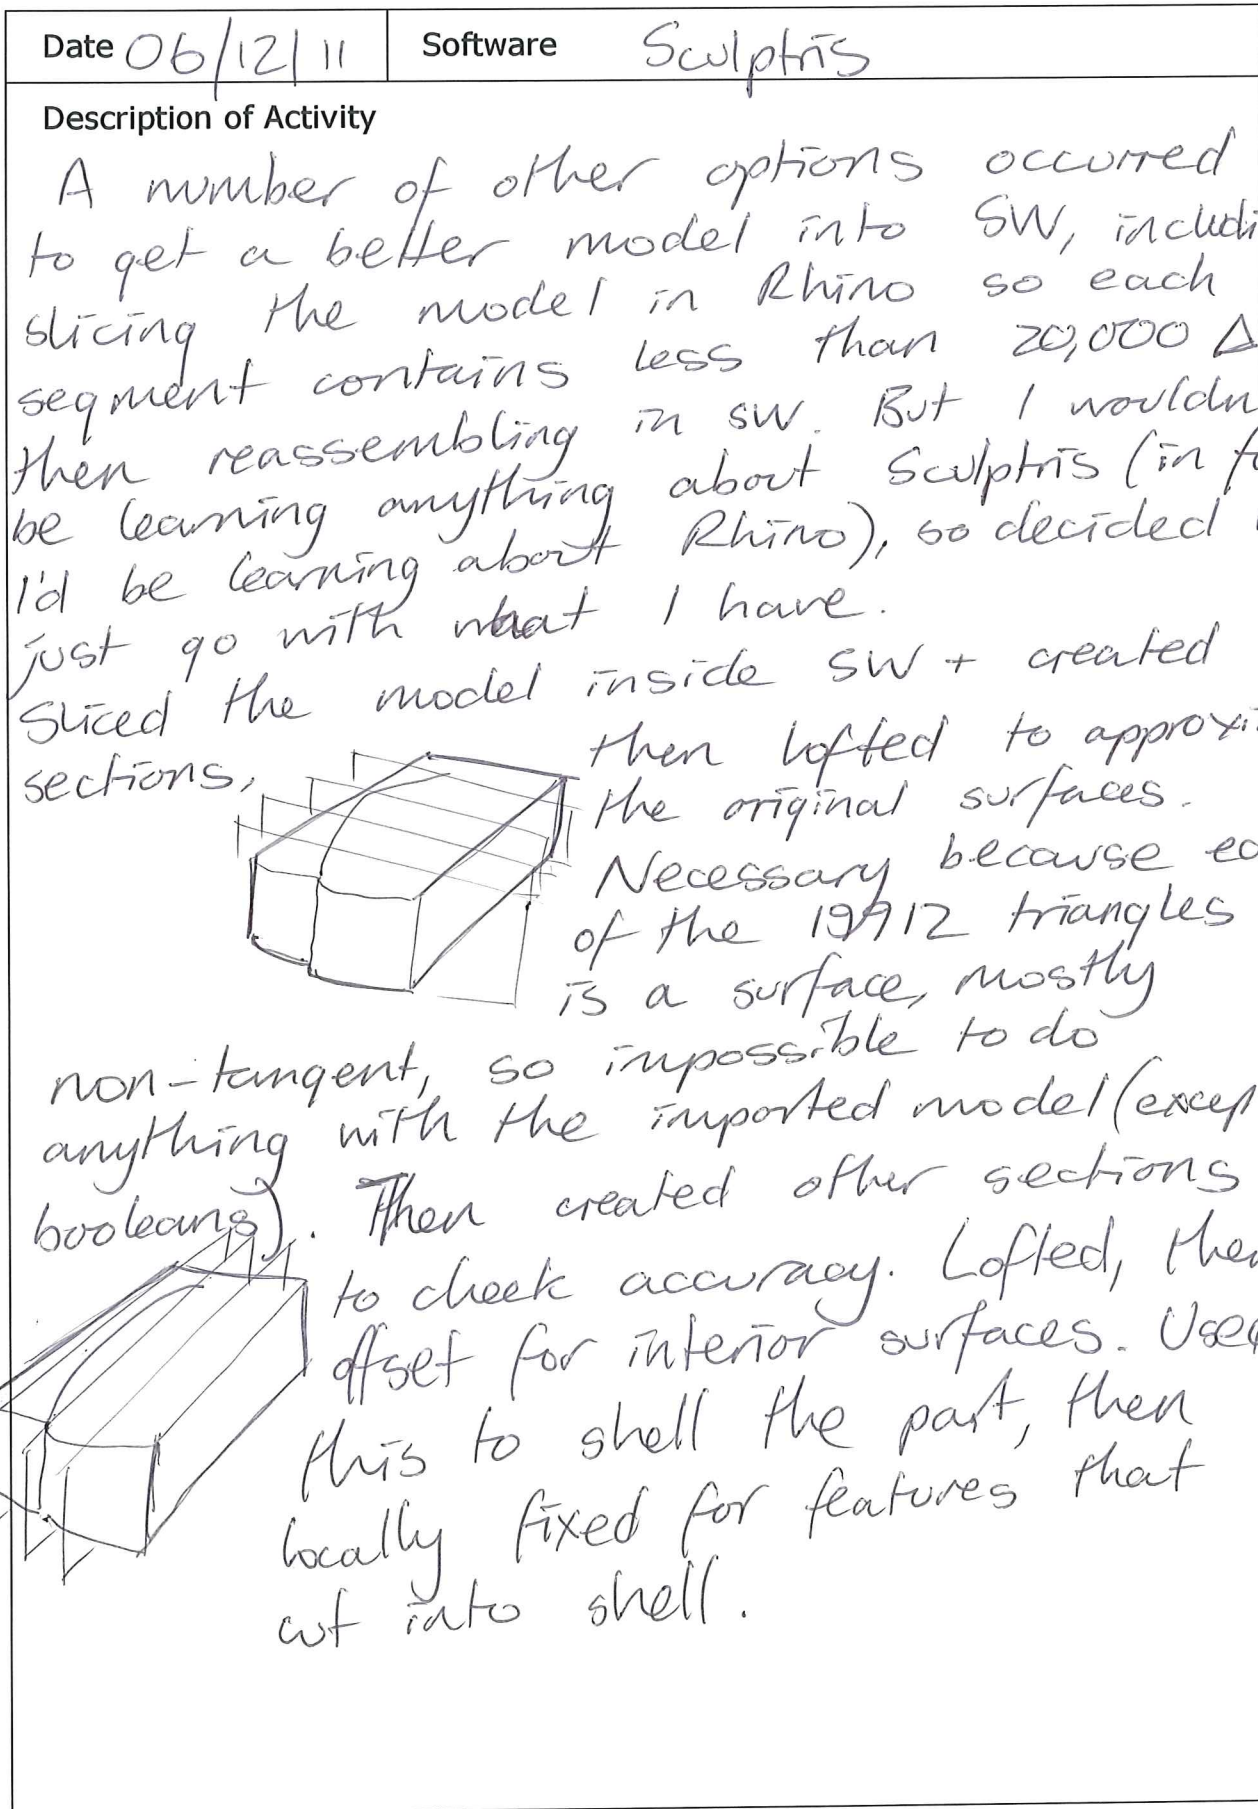 Date 06/12/11 Software Sculptris
Description of Activity
A number of other options occurred
to get a better model into SW, includi
slicing the model in Rhino so each
segment contains less than 20,000 Δ
then reassembling in SW. But I wouldn
be learning anything about Sculptris (in fa
I'd be learning about Rhino), so decided
just go with what I have.
Sliced the model inside SW + created
sections, then lofted to approxi
the original surfaces.
Necessary because ea
of the 19912 triangles
is a surface, mostly
non-tangent, so impossible to do
anything with the imported model (excep
booleans). Then created other sections
to check accuracy. Lofted, then
offset for interior surfaces. Used
this to shell the part, then
locally fixed for features that
cut into shell.